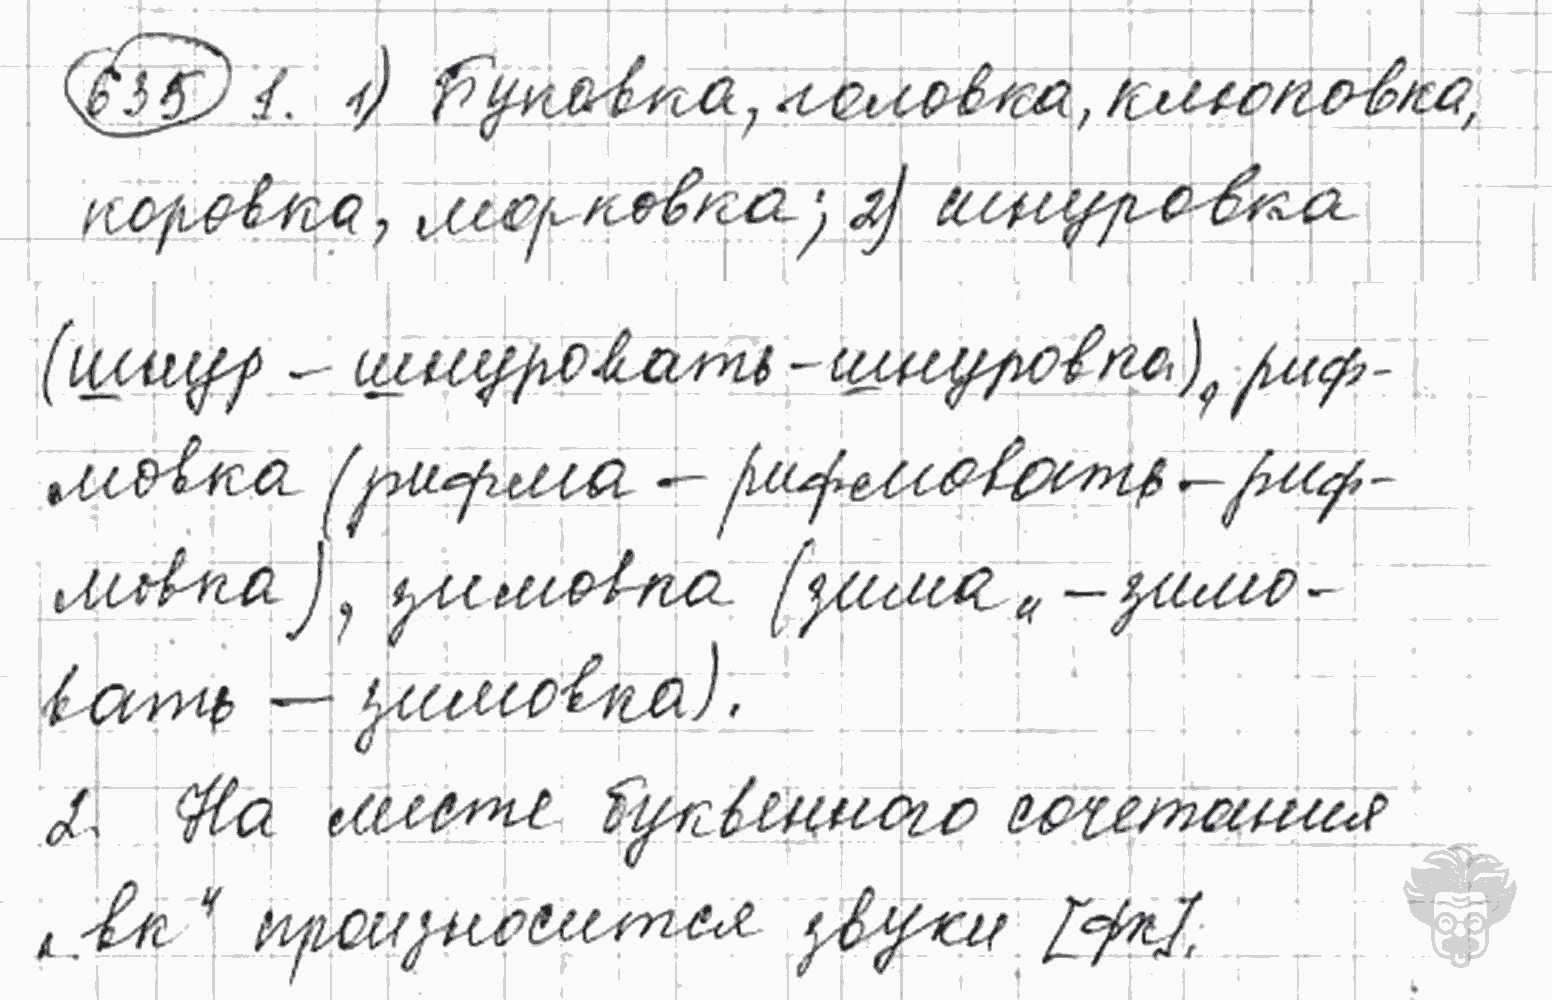 635 1. 1) Буковка, головка, клюковка,
коровка, морковка; 2) шнуровка
(шнур – шнуровать – шнуровка), риф-
мовка (рифма – рифмовать – риф-
мовка), зимовка (зима „ – зимо-
вать – зимовка).
2. На месте буквенного сочетания
„вк“ произносится звуки [фк].